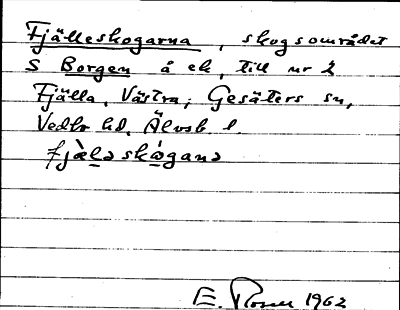 Fjälleskogarna, skogsområdet
S Borgen å ek, till nr 2
Fjälla, Västra; Gesäters sn,
Vedbo hd, Älvsb l.
fjæ̀lə skóganə
E. 1962